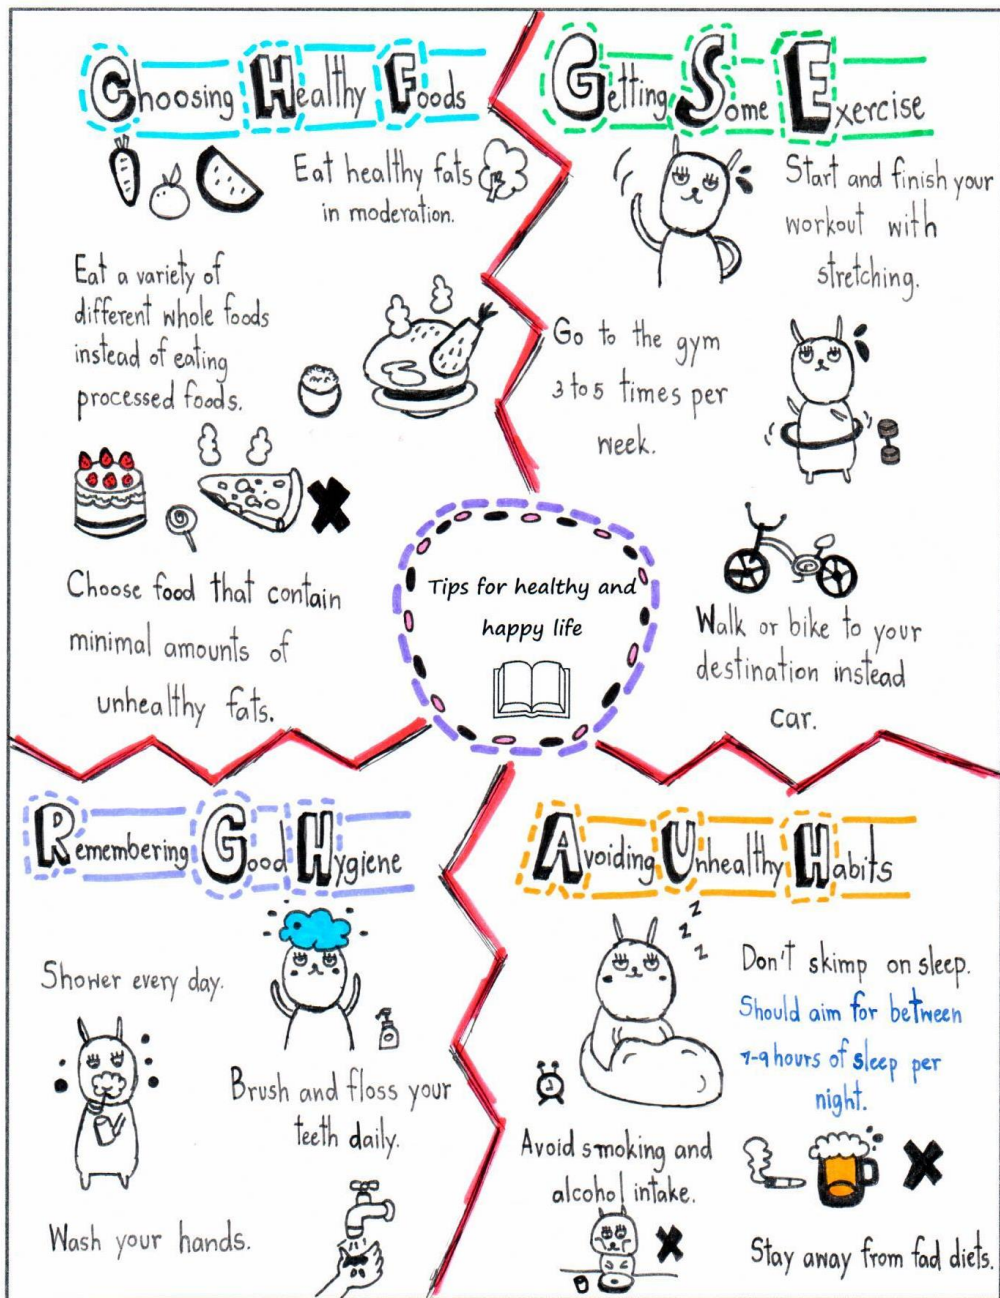 Choosing Healthy Foods
Eat healthy fats
in moderation.
Eat a variety of
different whole foods
instead of eating
processed foods.
Choose food that contain
minimal amounts of
unhealthy fats.
Getting Some Exercise
Start and finish your
workout with
stretching.
Go to the gym
3 to 5 times per
week.
Walk or bike to your
destination instead
car.
Tips for healthy and
happy life
Remembering Good Hygiene
Shower every day.
Brush and floss your
teeth daily.
Wash your hands.
Avoiding Unhealthy Habits
z
z
z
z
Don't skimp on sleep.
Should aim for between
7-9 hours of sleep per
night.
Avoid smoking and
alcohol intake.
Stay away from fad diets.